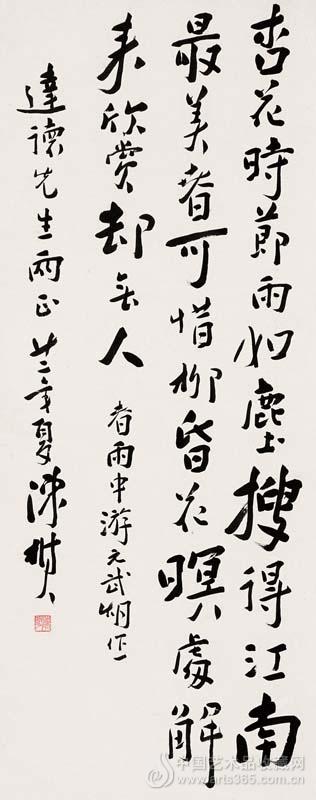 杏花時節雨如塵搜得江南
最美春可惜柳昏花暝處解
来欣賞却無人
春雨中游元武湖作
達德先生兩正 廿二年夏 陳樹人
中国艺术品收藏网
www.arts365.com.cn